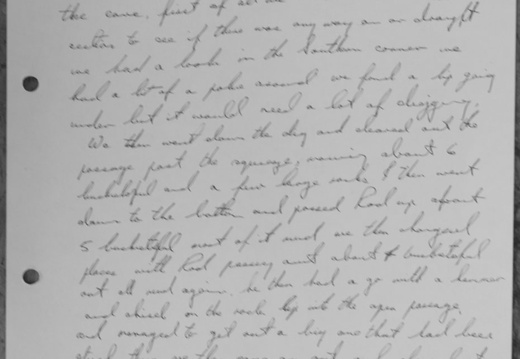 the cave, first of all we
to see if there was any way on or draught
we had a look in the Southern corner we
had a bit of a poke around we found a lip going
under but it would need a lot of digging.
We then went down the dig and cleared out the
passage past the squeeze, moving about 6
bucketsful and a few large rocks I then went
down to the bottom and passed Rod up about
5 bucketsful most of it mud we then changed
places with Rod passing out about 4 bucketsful
out all mud again. he then had a go with a hammer
and chisel on the rock lip into the open passage
and managed to get out a big one that had been